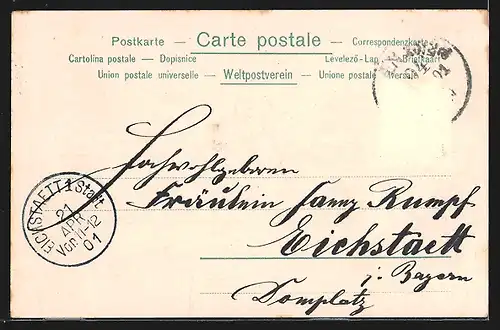 Postkarte — Carte postale — Correspondenzkarte
Cartolina postale — Dopisnice Levelező-Lap — Briefkaart
Union postale universelle — Weltpostverein — Unione postale universale
01
Hochwohlgeboren
Fräulein Fanny Rumpf
Eichstaett
i. Bayern
Domplatz
EICHSTAETT 1 Stadt
21
APR
Vor. 11-12
01